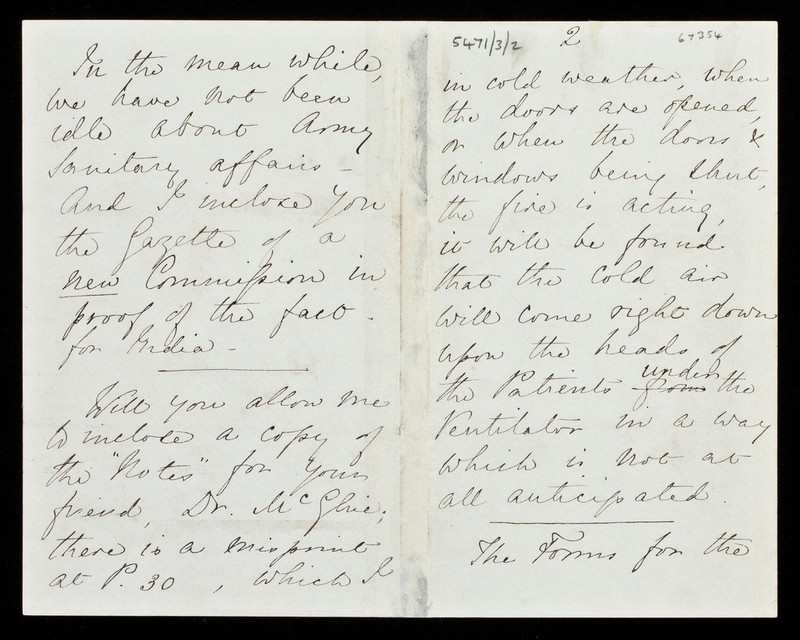 In the mean while,
we have not been
idle about Army
Sanitary affairs -
And I inclose you
the Gazette of a
new Commission in
proof of the fact -
for India -
Will you allow me
to inclose a copy of
the "Notes" for your
friend, Dr. McGhie;
there is a misprint
at P. 30, which I
5471/3/2
2
67354
in cold weather, when
the doors are opened,
or when the doors &
windows being shut,
the fire is acting,
it will be found
that the cold air
will come right down
upon the heads of
the Patients from under the
Ventilator in a way
which is not at
all anticipated.
The Forms for the